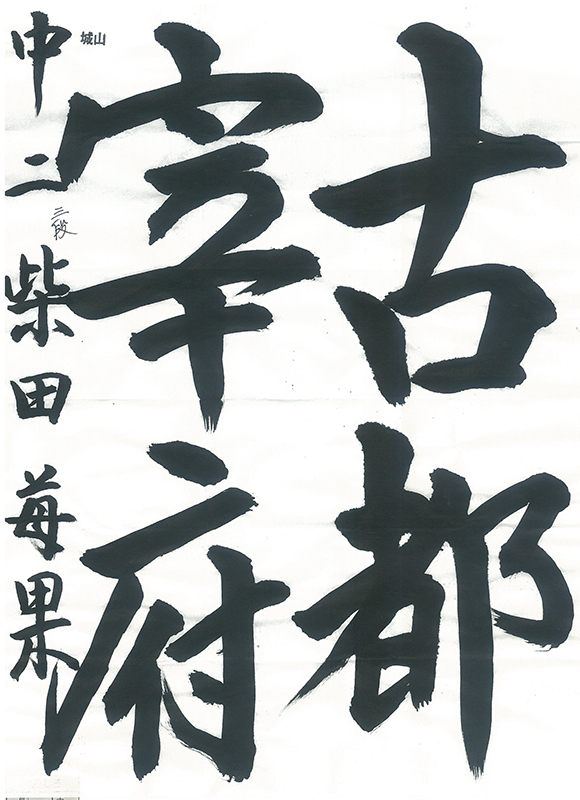 古都
宰府
中二 柴田苺果
三段
城山